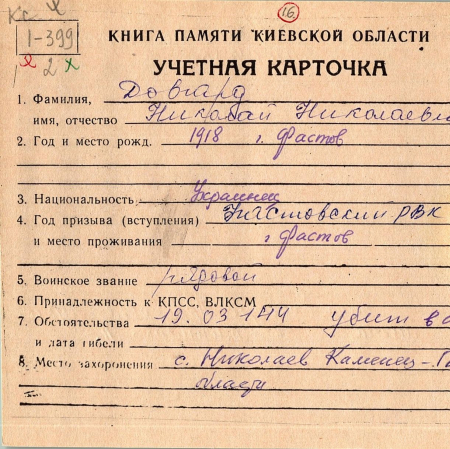 16
1-399
2
КНИГА ПАМЯТИ КИЕВСКОЙ ОБЛАСТИ
УЧЕТНАЯ КАРТОЧКА
1. Фамилия, Довгард
имя, отчество Николай Николаеви
2. Год и место рожд. 1918 г. Фастов
3. Национальность Украинец
4. Год призыва (вступления) Фастовский РВК
и место проживания г Фастов
5. Воинское звание рядовой
6. Принадлежность к КПСС, ВЛКСМ
7. Обстоятельства 19.03.44 убит в
и дата гибели
8. Место захоронения с. Николаев Каменец-П
области